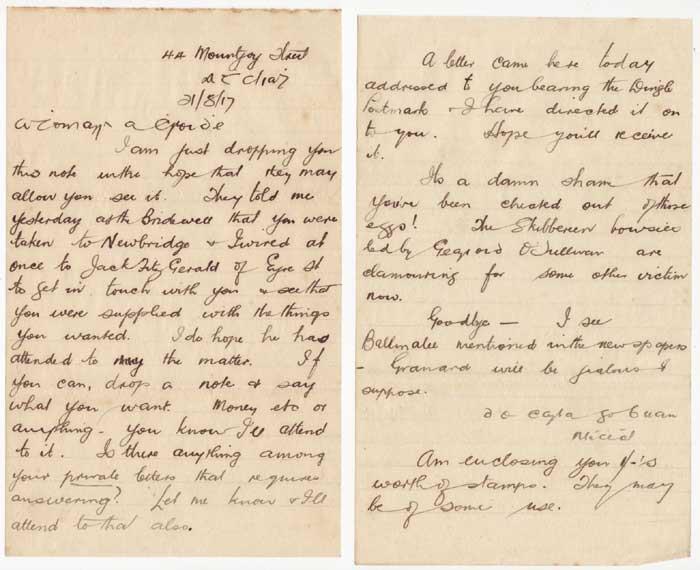 44 Mountjoy Street
21/8/17
a Croide
I am just dropping you
this note in the hope that they may
allow you see it. They told me
yesterday at the Bridewell that you were
taken to Newbridge & I wired at
once to Jack FitzGerald of Eyre St
to get in touch with you & see that
you were supplied with the things
you wanted. I do hope he has
attended to the matter. If
you can, drop a note & say
what you want. Money etc or
anything - you know I'll attend
to it. Is there anything among
your private letters that requires
answering? Let me know & I'll
attend to that also.
A letter came here today
addressed to you bearing the Dingle
Postmark & I have directed it on
to you. Hope you'll receive
it.
It's a damn shame that
you've been cheated out of those
eggs! The Skibbereen bowsies
led by Gearoid O'Sullivan are
clamouring for some other victim
now.
Goodbye — I see
Ballinalee mentioned in the newspapers
- Granard will be jealous I
suppose.
do cara go buan
Miceál
Am enclosing you 1/-'s
worth of stamps. They may
be of some use.